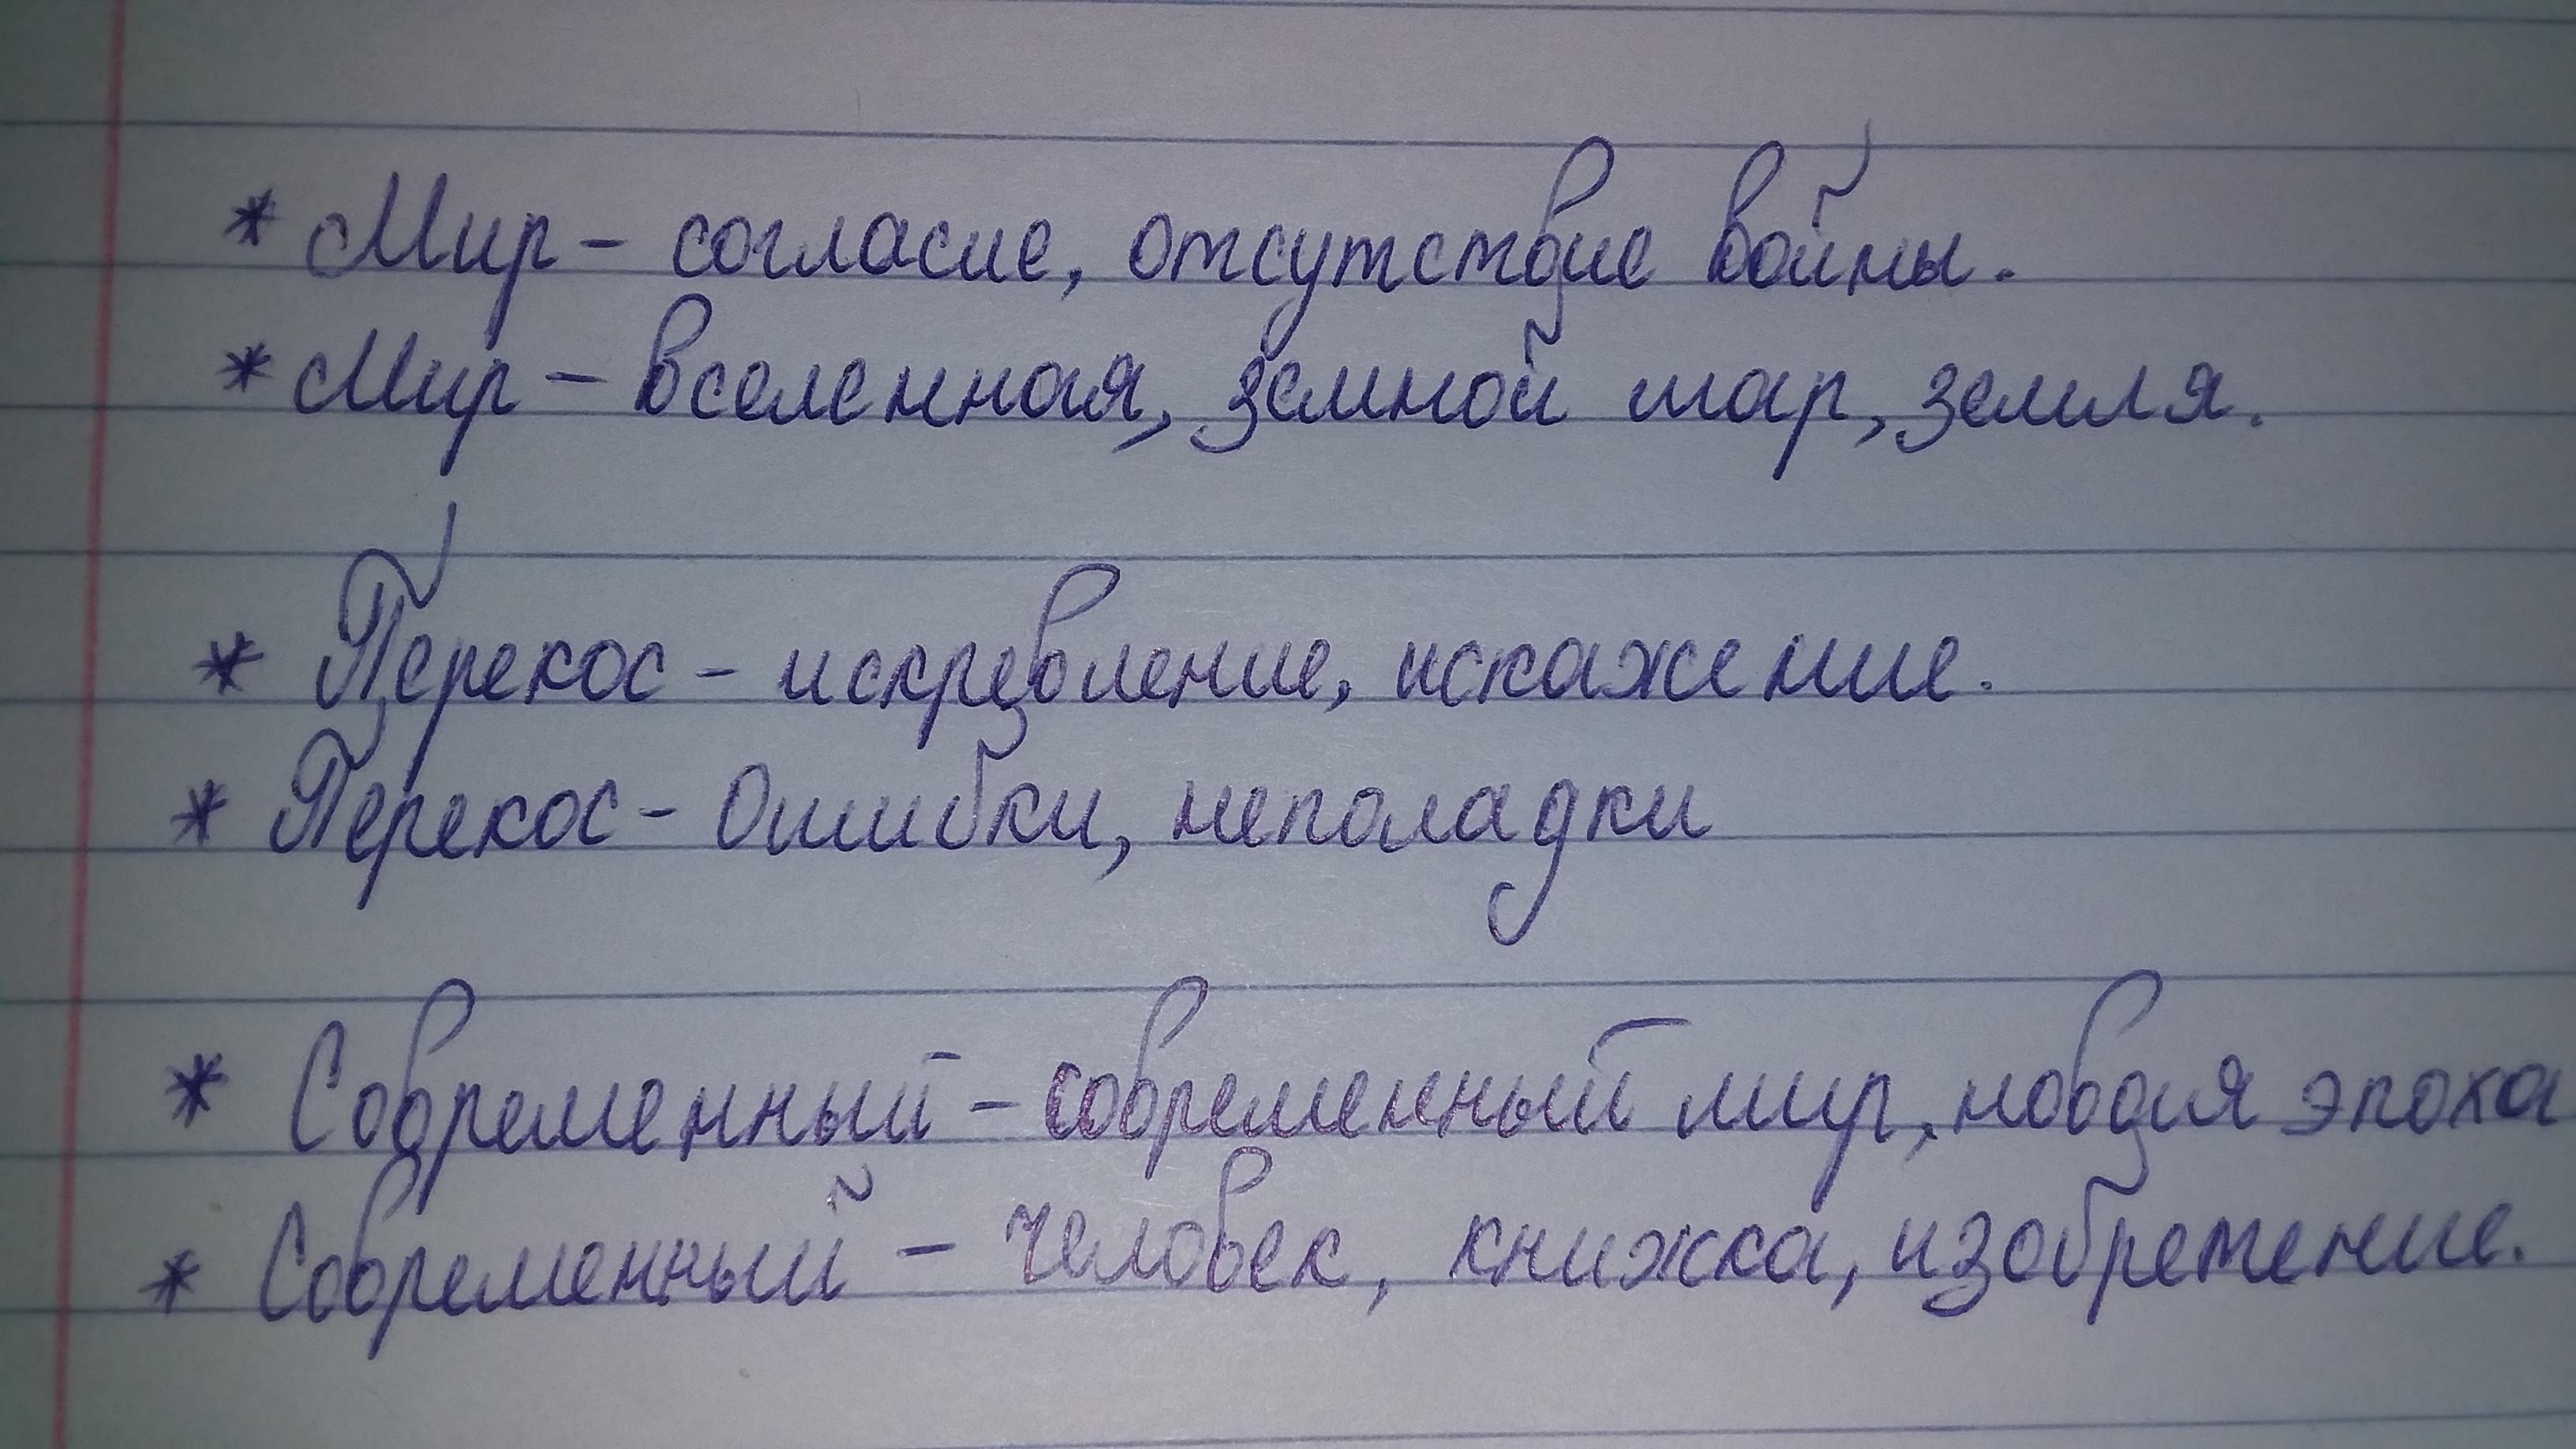 * Мир - согласие, отсутствие войны.
* Мир - вселенная, земной шар, земля.
* Перекос - искревление, искажение.
* Перекос - Ошибки, неполадки
* Современный - современный мир, новая эпоха
* Современный - человек, книжка, изобретение.